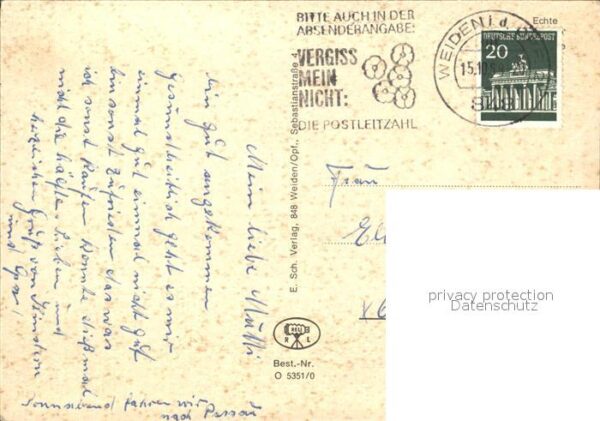 BITTE AUCH IN DER
ABSENDERANGABE:
VERGISS
MEIN
NICHT:
DIE POSTLEITZAHL
WEIDEN i. d.
15.1
Echte
DEUTSCHE BUNDESPOST
20
Meine liebe Mutti
bin gut angekommen
gesundheitlich geht es mir
einmal gut einmal nicht gut
bin sonst zufrieden das was
ich sonst kaufen konnte diesmal
nicht die hälfte. Lieben und
herzlichen Gruß von Kindern
und
Sonnabend fahren wir
nach Passau
E. Sch. Verlag, 848 Weiden/Opf., Sebastianstraße 4
Frau
El
R L
Best.-Nr.
O 5351/0
privacy protection
Datenschutz